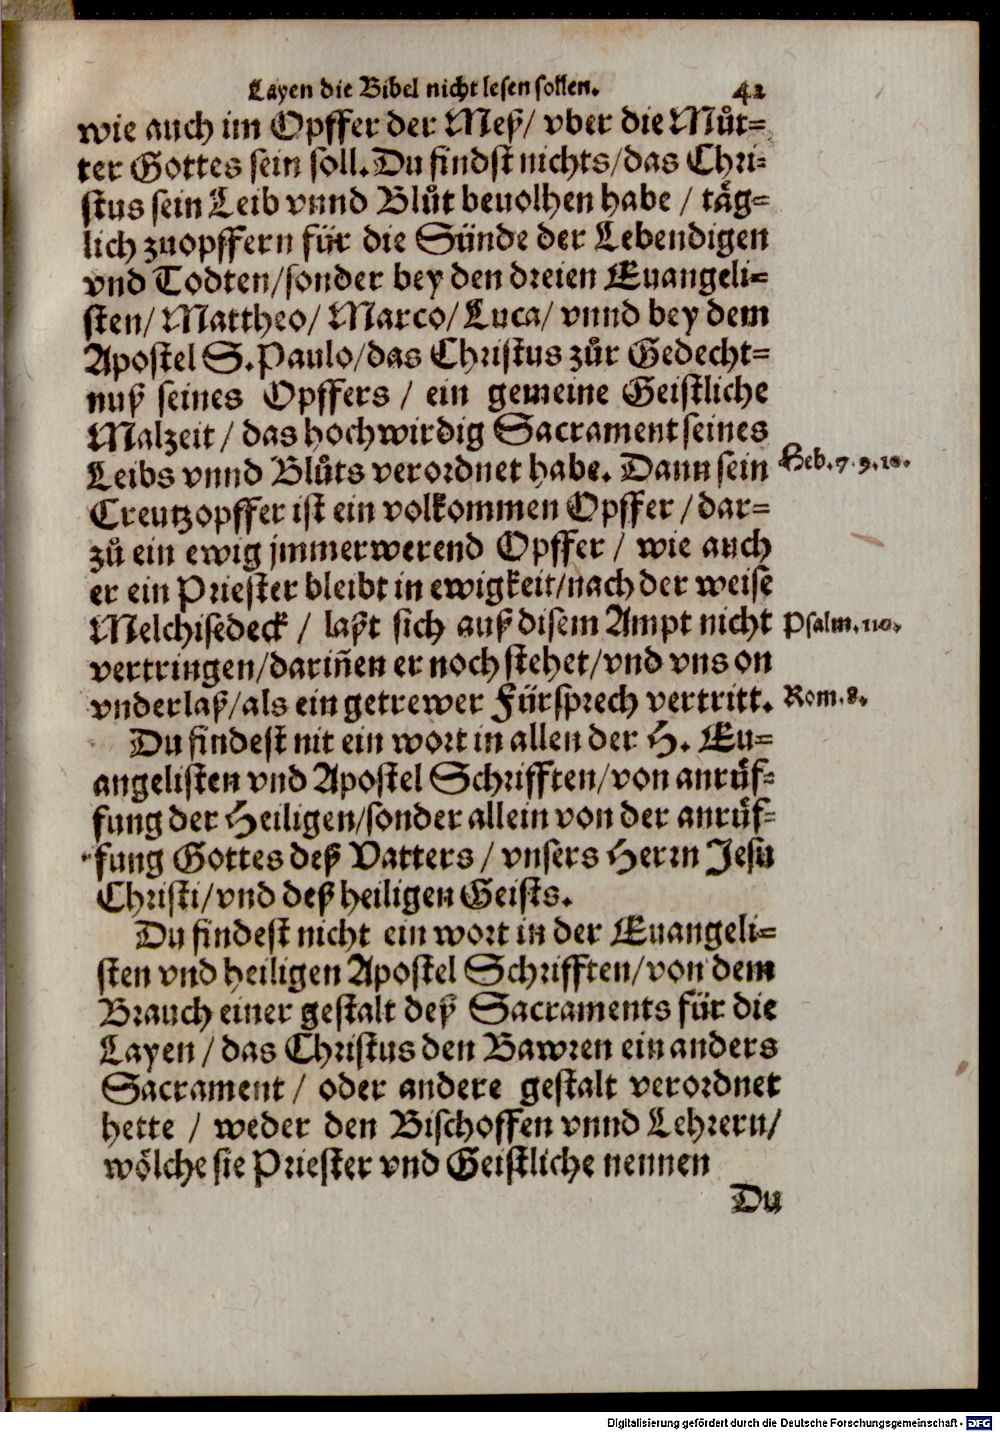 Layen die Bibel nicht lesen sollen. 42
wie auch im Opffer der Meß/ vber die Můt⸗
ter Gottes sein soll. Du findst nichts/das Chri⸗
stus sein Leib vnnd Blůt beuolhen habe / täg⸗
lich zuopffern für die Sünde der Lebendigen
vnd Todten/sonder bey den dreien Euangeli⸗
sten/ Mattheo/ Marco/ Luca/ vnnd bey dem
Apostel S. Paulo/das Christus zůr Gedecht⸗
nuß seines Opffers / ein gemeine Geistliche
Malzeit / das hochwirdig Sacrament seines
Leibs vnnd Blůts verordnet habe. Dann sein Heb. 7. 9. 10.
Creutzopffer ist ein volkommen Opffer / dar⸗
zů ein ewig jmmerwerend Opffer / wie auch
er ein Priester bleibt in ewigkeit/nach der weise
Melchisedeck / laßt sich auß disem Ampt nicht Psalm. 110.
vertringen/dariñen er noch stehet/vnd vns on
vnderlaß/als ein getrewer Fürsprech vertritt. Rom. 8.
Du findest nit ein wort in allen der H. Eu⸗
angelisten vnd Apostel Schrifften/von anrůf⸗
fung der Heiligen/sonder allein von der anrůf⸗
fung Gottes deß Vatters / vnsers Herrn Jesu
Christi/vnd deß heiligen Geists.
Du findest nicht ein wort in der Euangeli⸗
sten vnd heiligen Apostel Schrifften/von dem
Brauch einer gestalt deß Sacraments für die
Layen / das Christus den Bawren ein anders
Sacrament / oder andere gestalt verordnet
hette / weder den Bischoffen vnnd Lehrern/
wölche sie Priester vnd Geistliche nennen
Du
Digitalisierung gefördert durch die Deutsche Forschungsgemeinschaft - DFG